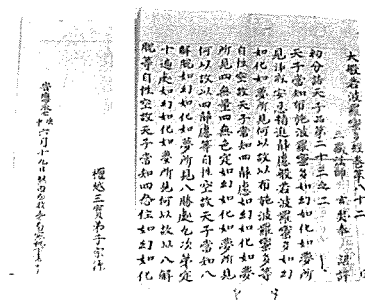 大般若波羅蜜多經卷第八十二
三藏法師玄奘奉 詔譯
初分諸天子品第二十三之二
天子當知布施波羅蜜多如幻如化如夢所
見淨戒安忍精進靜慮般若波羅蜜多如幻
如化如夢所見何以故以布施波羅蜜多等
自性空故天子當知四靜慮如幻如化如夢
所見四無量四無色定如幻如化如夢所見
何以故以四靜慮等自性空故天子當知八
解脫如幻如化如夢所見八勝處九次第定
十遍處如幻如化如夢所見何以故以八解
脫等自性空故天子當知四念住如幻如化
檀越三寶弟子宗
六月十九日